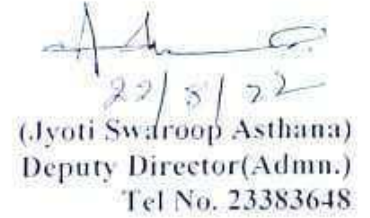 22/8/22
(Jyoti Swaroop Asthana)
Deputy Director(Admn.)
Tel No. 23383648